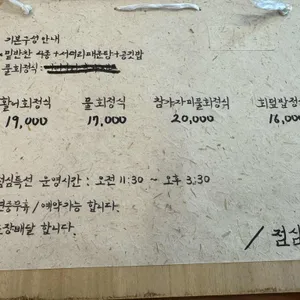 기본구성안내
밑반찬 4종 + 서더리매운탕 + 공깃밥
물회정식 :
활어회정식 물회정식 참가자미물회정식 회덮밥정식
19,000 17,000 20,000 16,000
점심특선 운영시간 : 오전 11:30 ~ 오후 3:30
연중무휴 / 예약가능 합니다.
포장배달 합니다.
/ 점심